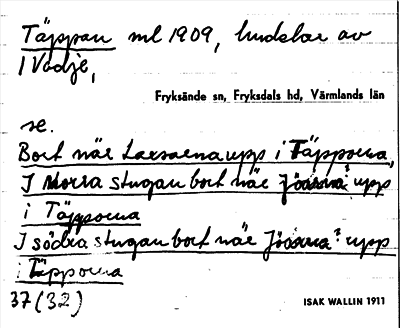 Täppan ml 1909, lindelar av
1 Vadje,
Fryksände sn, Fryksdals hd, Värmlands län
se.
Bort när Larsarna upp i Täpporna,
I Norra stugan bort när Jöarna? upp
i Täpporna
I södra stugan bort när Jöarna? upp
i Täpporna
37 (32)
ISAK WALLIN 1911